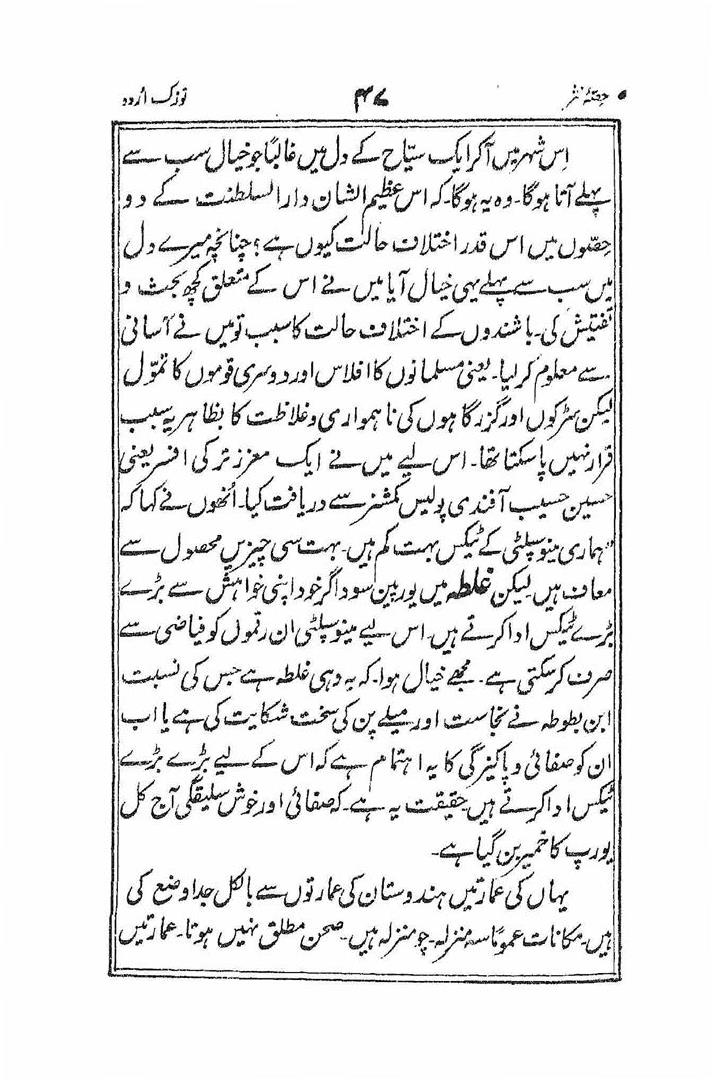 حصّۂ نثر ۴۷ توزک اُردو
اِس شہر میں آکر ایک سیّاح کے دل میں غالباً جو خیال سب سے
پہلے آتا ہوگا۔ وہ یہ ہوگا۔ کہ اس عظیم الشان دار السلطنت کے دو
حصّوں میں اس قدر اختلاف حالت کیوں ہے؟ چنانچہ میرے دل
میں سب سے پہلے یہی خیال آیا میں نے اس کے متعلق کچھ بحث و
تفتیش کی۔ باشندوں کے اختلاف حالت کا سبب تو میں نے آسانی
سے معلوم کر لیا۔ یعنی مسلمانوں کا افلاس اور دوسری قوموں کا تموّل
لیکن سڑکوں اور گزرگاہوں کی ناہمواری و غلاظت کا بظاہر یہ سبب
قرار نہیں پا سکتا تھا۔ اس لیے میں نے ایک معزز ترکی افسر یعنی
حسین حسیب آفندی پولیس کمشنر سے دریافت کیا۔ اُنھوں نے کہا کہ
"ہماری مینوسپلٹی کے ٹیکس بہت کم ہیں۔ بہت سی چیزیں محصول سے
معاف ہیں لیکن غلطہ میں یورپین سوداگر خود اپنی خواہش سے بڑے
بڑے ٹیکس ادا کرتے ہیں۔ اس لیے مینوسپلٹی ان رقموں کو فیاضی سے
صرف کر سکتی ہے۔ مجھے خیال ہوا۔ کہ یہ وہی غلطہ ہے جس کی نسبت
ابن بطوطہ نے نجاست اور میلے پن کی سخت شکایت کی ہے یا اب
ان کو صفائی و پاکیزگی کا یہ اہتمام ہے کہ اس کے لیے بڑے بڑے
ٹیکس ادا کرتے ہیں۔ حقیقت یہ ہے۔ کہ صفائی اور خوش سلیقگی آج کل
یورپ کا خمیر بن گیا ہے۔
یہاں کی عمارتیں ہندوستان کی عمارتوں سے بالکل جدا وضع کی
ہیں۔ مکانات عموماً سہ منزلہ۔ چو منزلہ ہیں۔ صحن مطلق نہیں ہوتا۔ عمارتیں